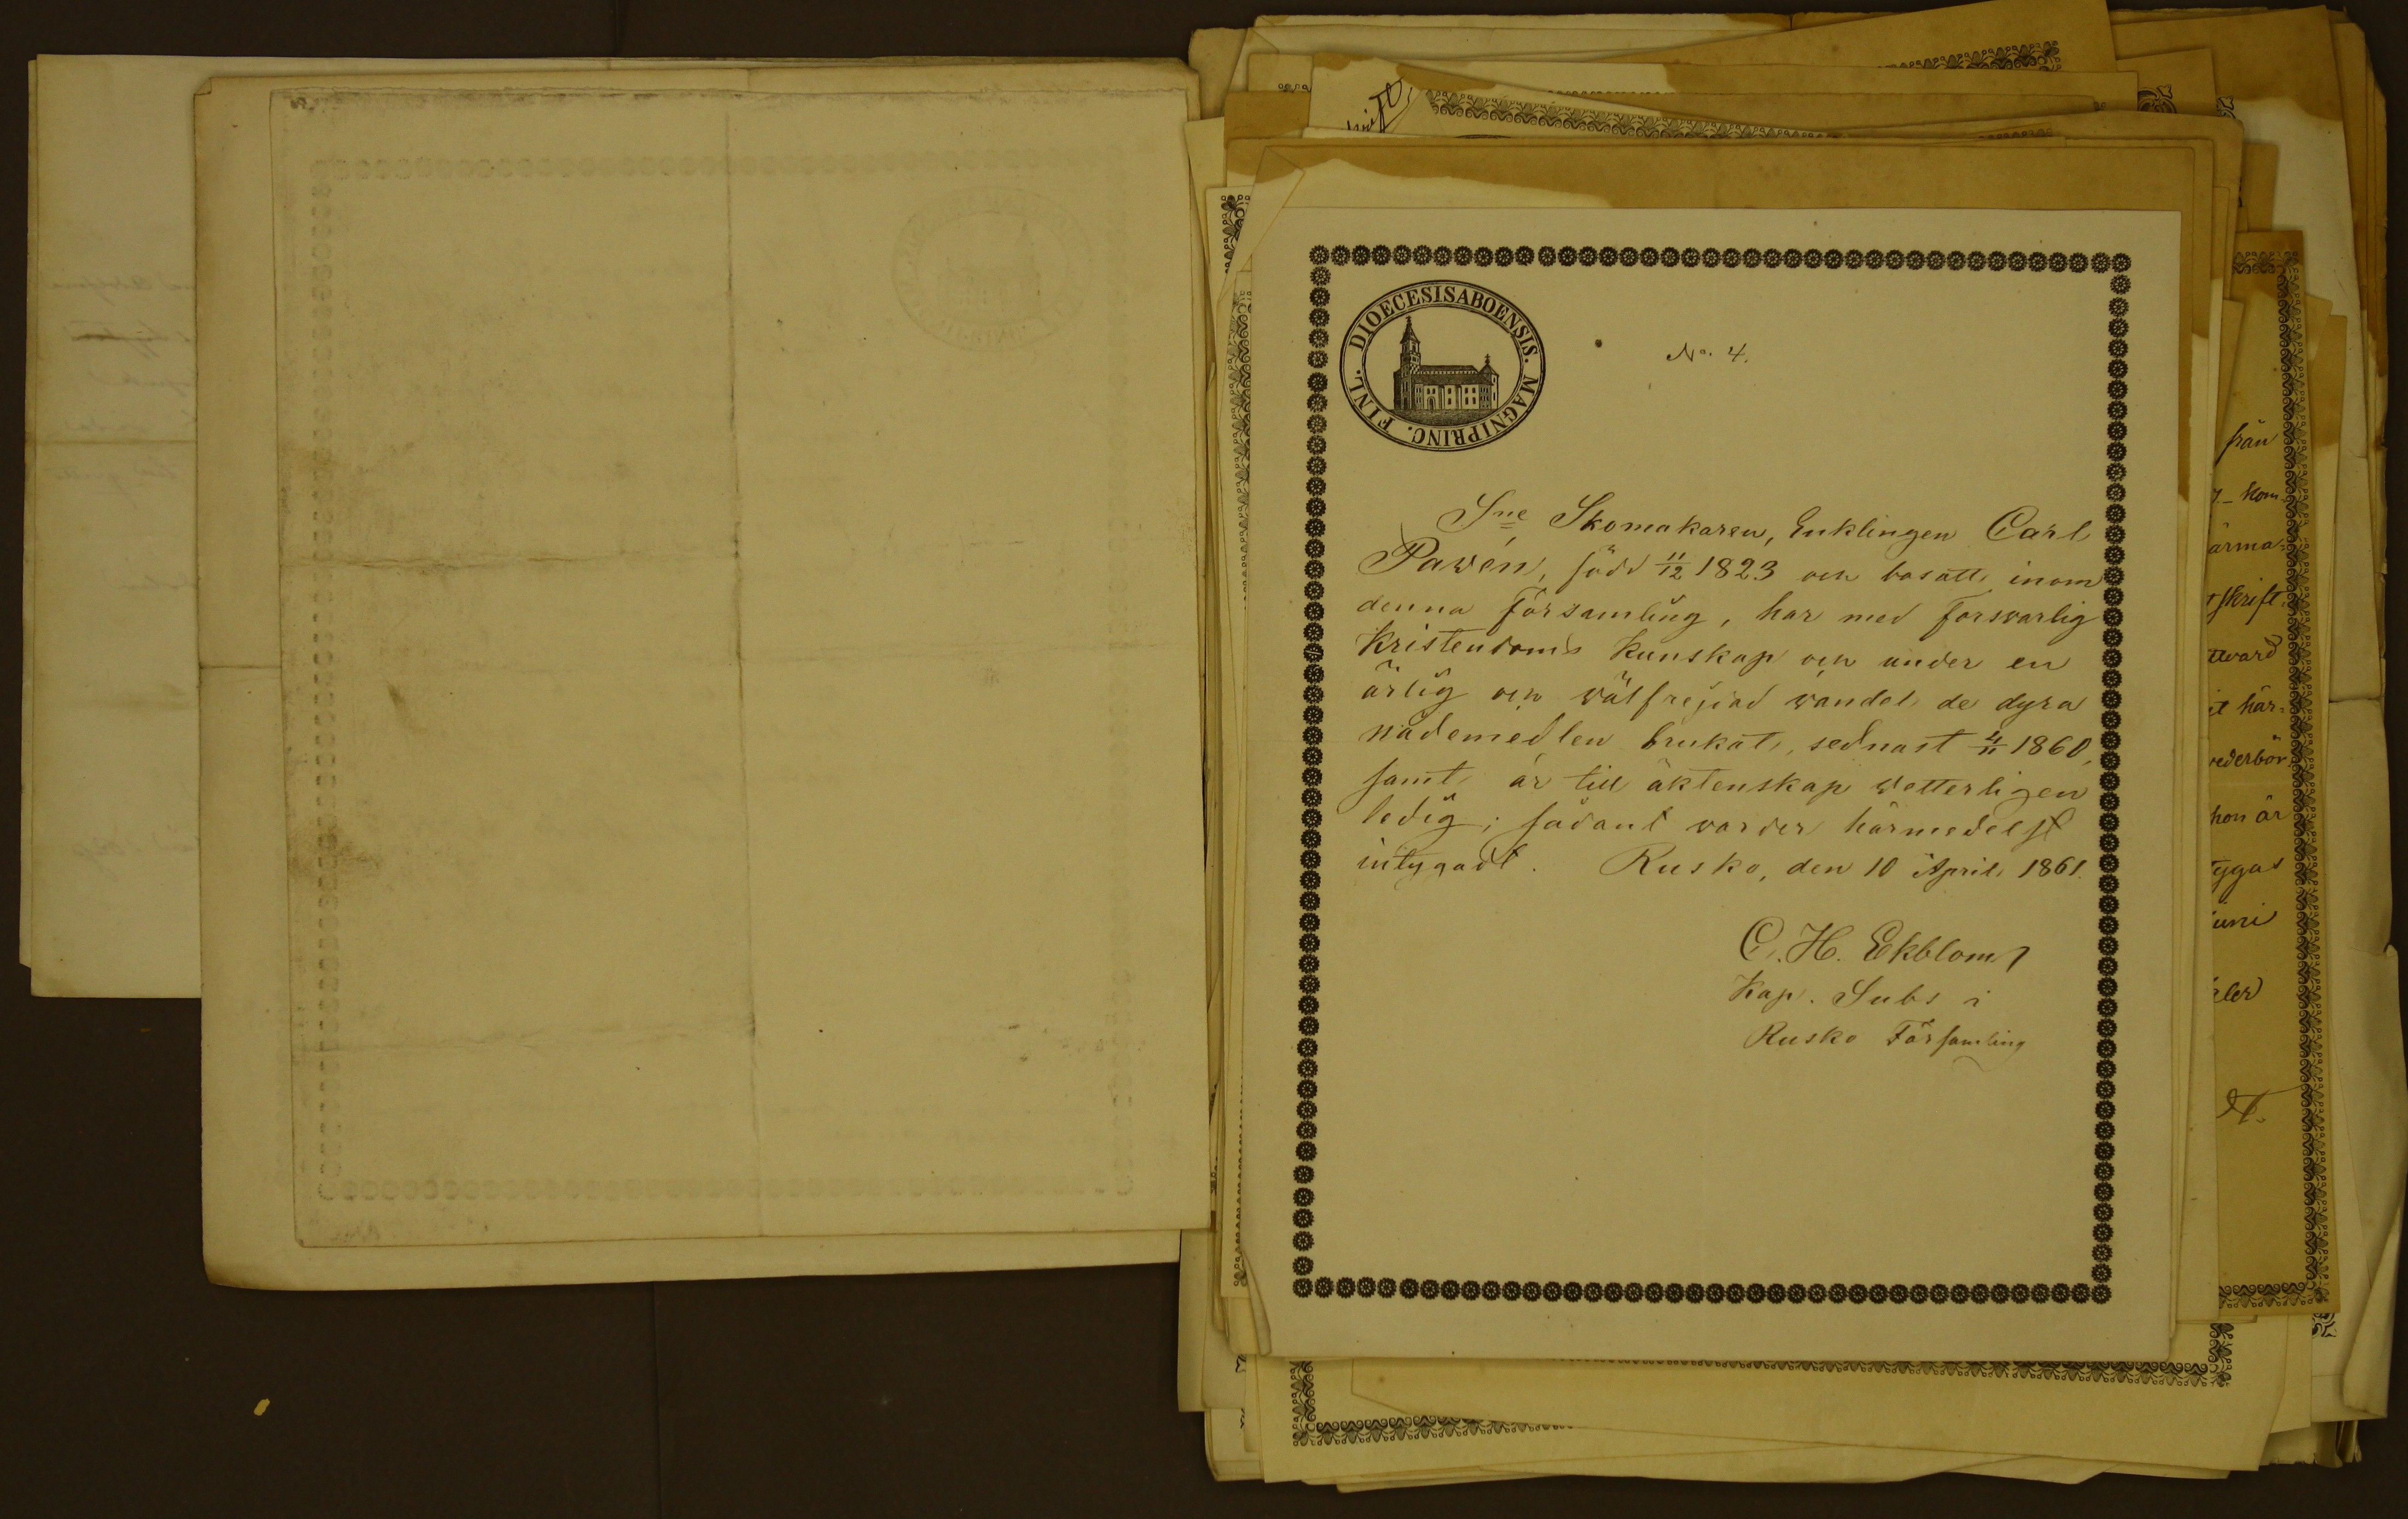 DIOECESIS ABOENSIS. MAGNI PRINC. FINL.
No. 4.
Sne Skomakaren, Enklingen Carl
Pawén, född 11/12 1823 och bosatt inom
denna Församling, har med forswarlig
Kristendoms Kunskap och under en
ärlig och wälfrejdad wandel de dyra
nådemedlen brukat, sednast 4/11 1860,
samt är till äktenskap wetterligen
ledig; sådant warder härmedelst
intygadt. Rusko, den 10 April 1861.
C. H. Ekblom
Kap. Subs i
Rusko Församling
från
kom
ärma=
skrift.
ttvard
it här=
vederbör
hon är
tygas
Juni